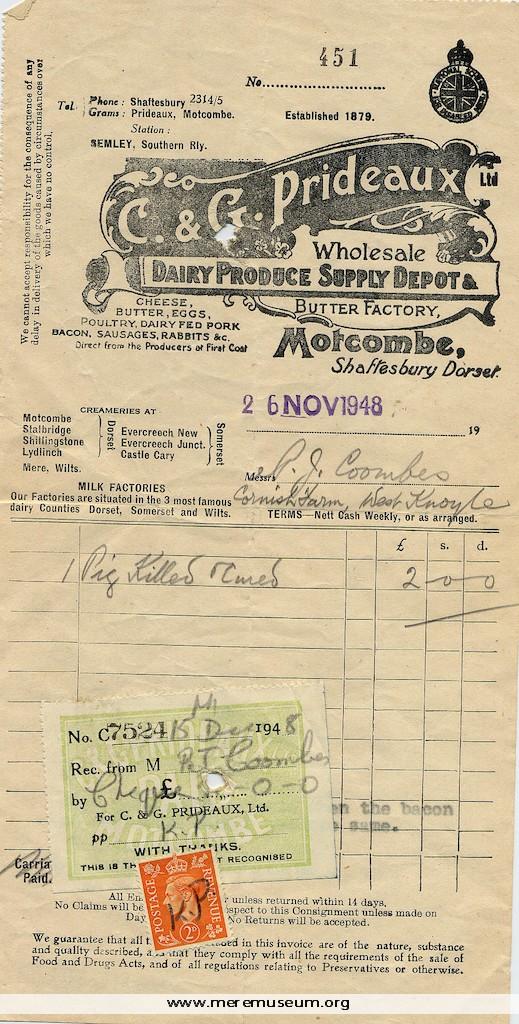 451
No.
NATIONAL ROLL
We cannot accept responsibility for the consequence of any
delay in delivery of the goods caused by circumstances over
which we have no control.
Tel. Phone : Shaftesbury 2314/5
Grams : Prideaux, Motcombe.
Established 1879.
Station :
SEMLEY, Southern Rly.
C. & G. Prideaux Ltd
Wholesale
DAIRY PRODUCE SUPPLY DEPOT &
BUTTER FACTORY,
CHEESE,
BUTTER, EGGS,
POULTRY, DAIRY FED PORK
BACON, SAUSAGES, RABBITS &c.
Direct from the Producers at First Cost
Motcombe,
Shaftesbury Dorset.
CREAMERIES AT
Motcombe
Stalbridge
Shillingstone
Lydlinch
Dorset
Evercreech New
Evercreech Junct.
Castle Cary
Somerset
Mere, Wilts.
26 NOV 1948
19
Messrs P. J. Coombes
Cornish Farm, West Knoyle
MILK FACTORIES
Our Factories are situated in the 3 most famous
dairy Counties Dorset, Somerset and Wilts.
TERMS — Nett Cash Weekly, or as arranged.
£ s. d.
1 Pig Killed & Cured 2-0-0
No. C7524 15 Dec 1948
Rec. from M P.J. Coombes
by Cheque £ 2-0-0
For C. & G. PRIDEAUX, Ltd.
pp K.P
WITH THANKS.
THIS IS TH T RECOGNISED
en the bacon
same.
Carria
Paid.
POSTAGE REVENUE
K.P
2D
All Em r unless returned within 14 days.
No Claims will be spect to this Consignment unless made on
Day No Returns will be accepted.
We guarantee that all t uded in this invoice are of the nature, substance
and quality described, a that they comply with all the requirements of the sale of
Food and Drugs Acts, and of all regulations relating to Preservatives or otherwise.
www.meremuseum.org